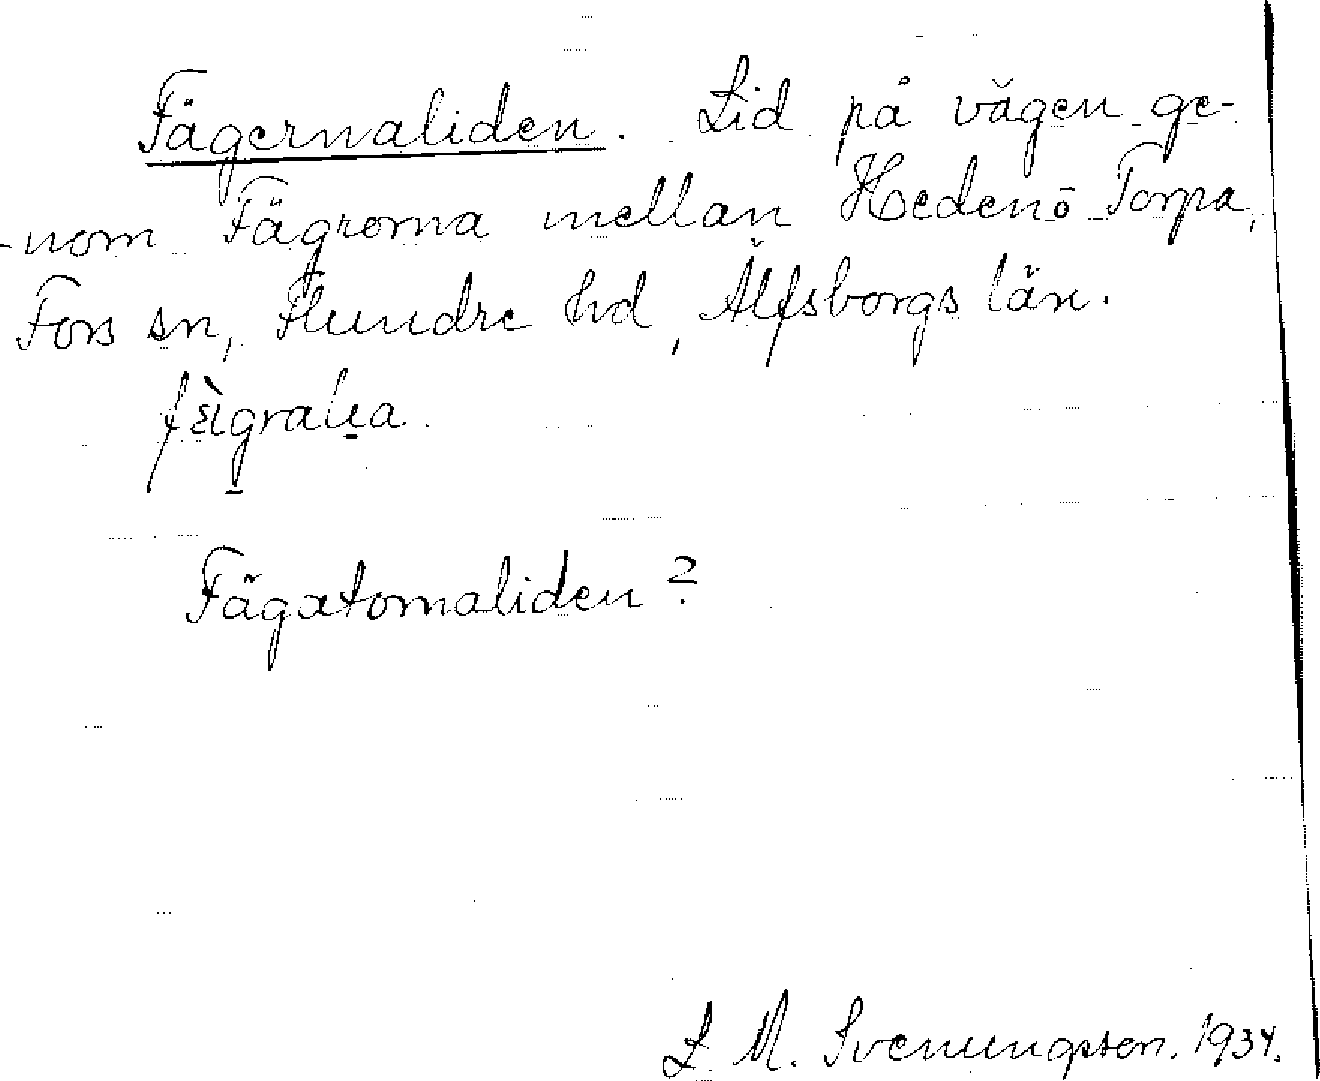 Fägernaliden. Lid på vägen ge-
-nom Fägrorna mellan Hedenō Torpa,
Fors sn, Flundre hd, Älfsborgs län.
Fägatomaliden?
L. M. Svenungsson. 1934.